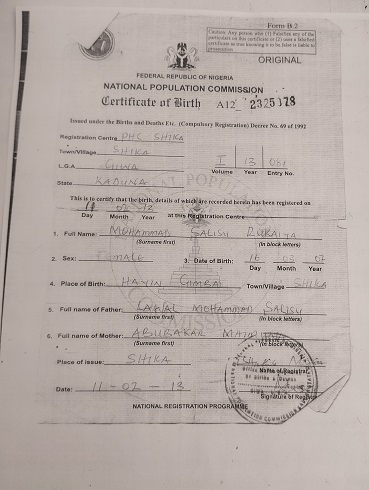 Form B.2
Caution: Any person who (1) Falsifies any of the
particulars on this certificate or (2) uses a falsified
certificate as true knowing it to be false is liable to
prosecution
ORIGINAL
FEDERAL REPUBLIC OF NIGERIA
NATIONAL POPULATION COMMISSION
Certificate of Birth A12 2325078
Issued under the Births and Deaths Etc. (Compulsory Registration) Decree No. 69 of 1992
Registration Centre PHC SHIKA
Town/Village SHIKA
L.G.A GIWA I 13 031
Volume Year Entry No.
State KADUNA
This is to certify that the birth, details of which are recorded herein has been registered on
11 02
Day Month Year at this Registration Centre
1. Full Name: MOHAMMAD SALISU RUKAIYA
(Surname first) (In block letters)
2. Sex: Female 3. Date of Birth: 16 03 07
Day Month Year
4. Place of Birth: HAYIN Town/Village SHIKA
5. Full name of Father: LAWAL MOHAMMAD SALISU
(Surname first) (In block letters)
6. Full name of Mother: ABUBAKAR
(Surname first) (In block letters)
Place of issue: SHIKA
Name of Registrar
Of Births & Deaths
Date: 11-02-13
Signature of Registrar
NATIONAL REGISTRATION PROGRAMME